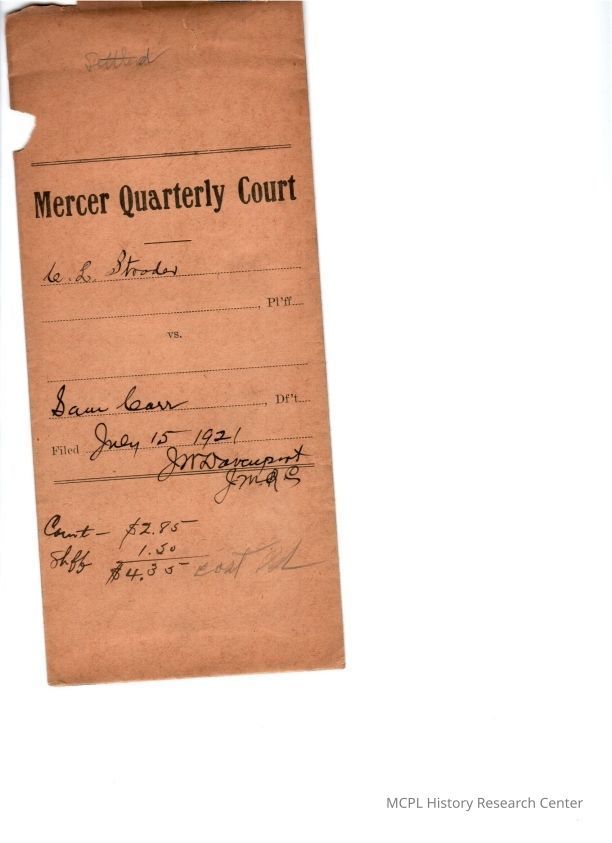 Settled
Mercer Quarterly Court
C. L. Strader
, Pl'ff
vs.
Sam Carr, Df't
Filed July 15 1921
J W Davenport
J M Q C
Court - $2.85
Shff 1.50
$4.35 cost Pd
MCPL History Research Center